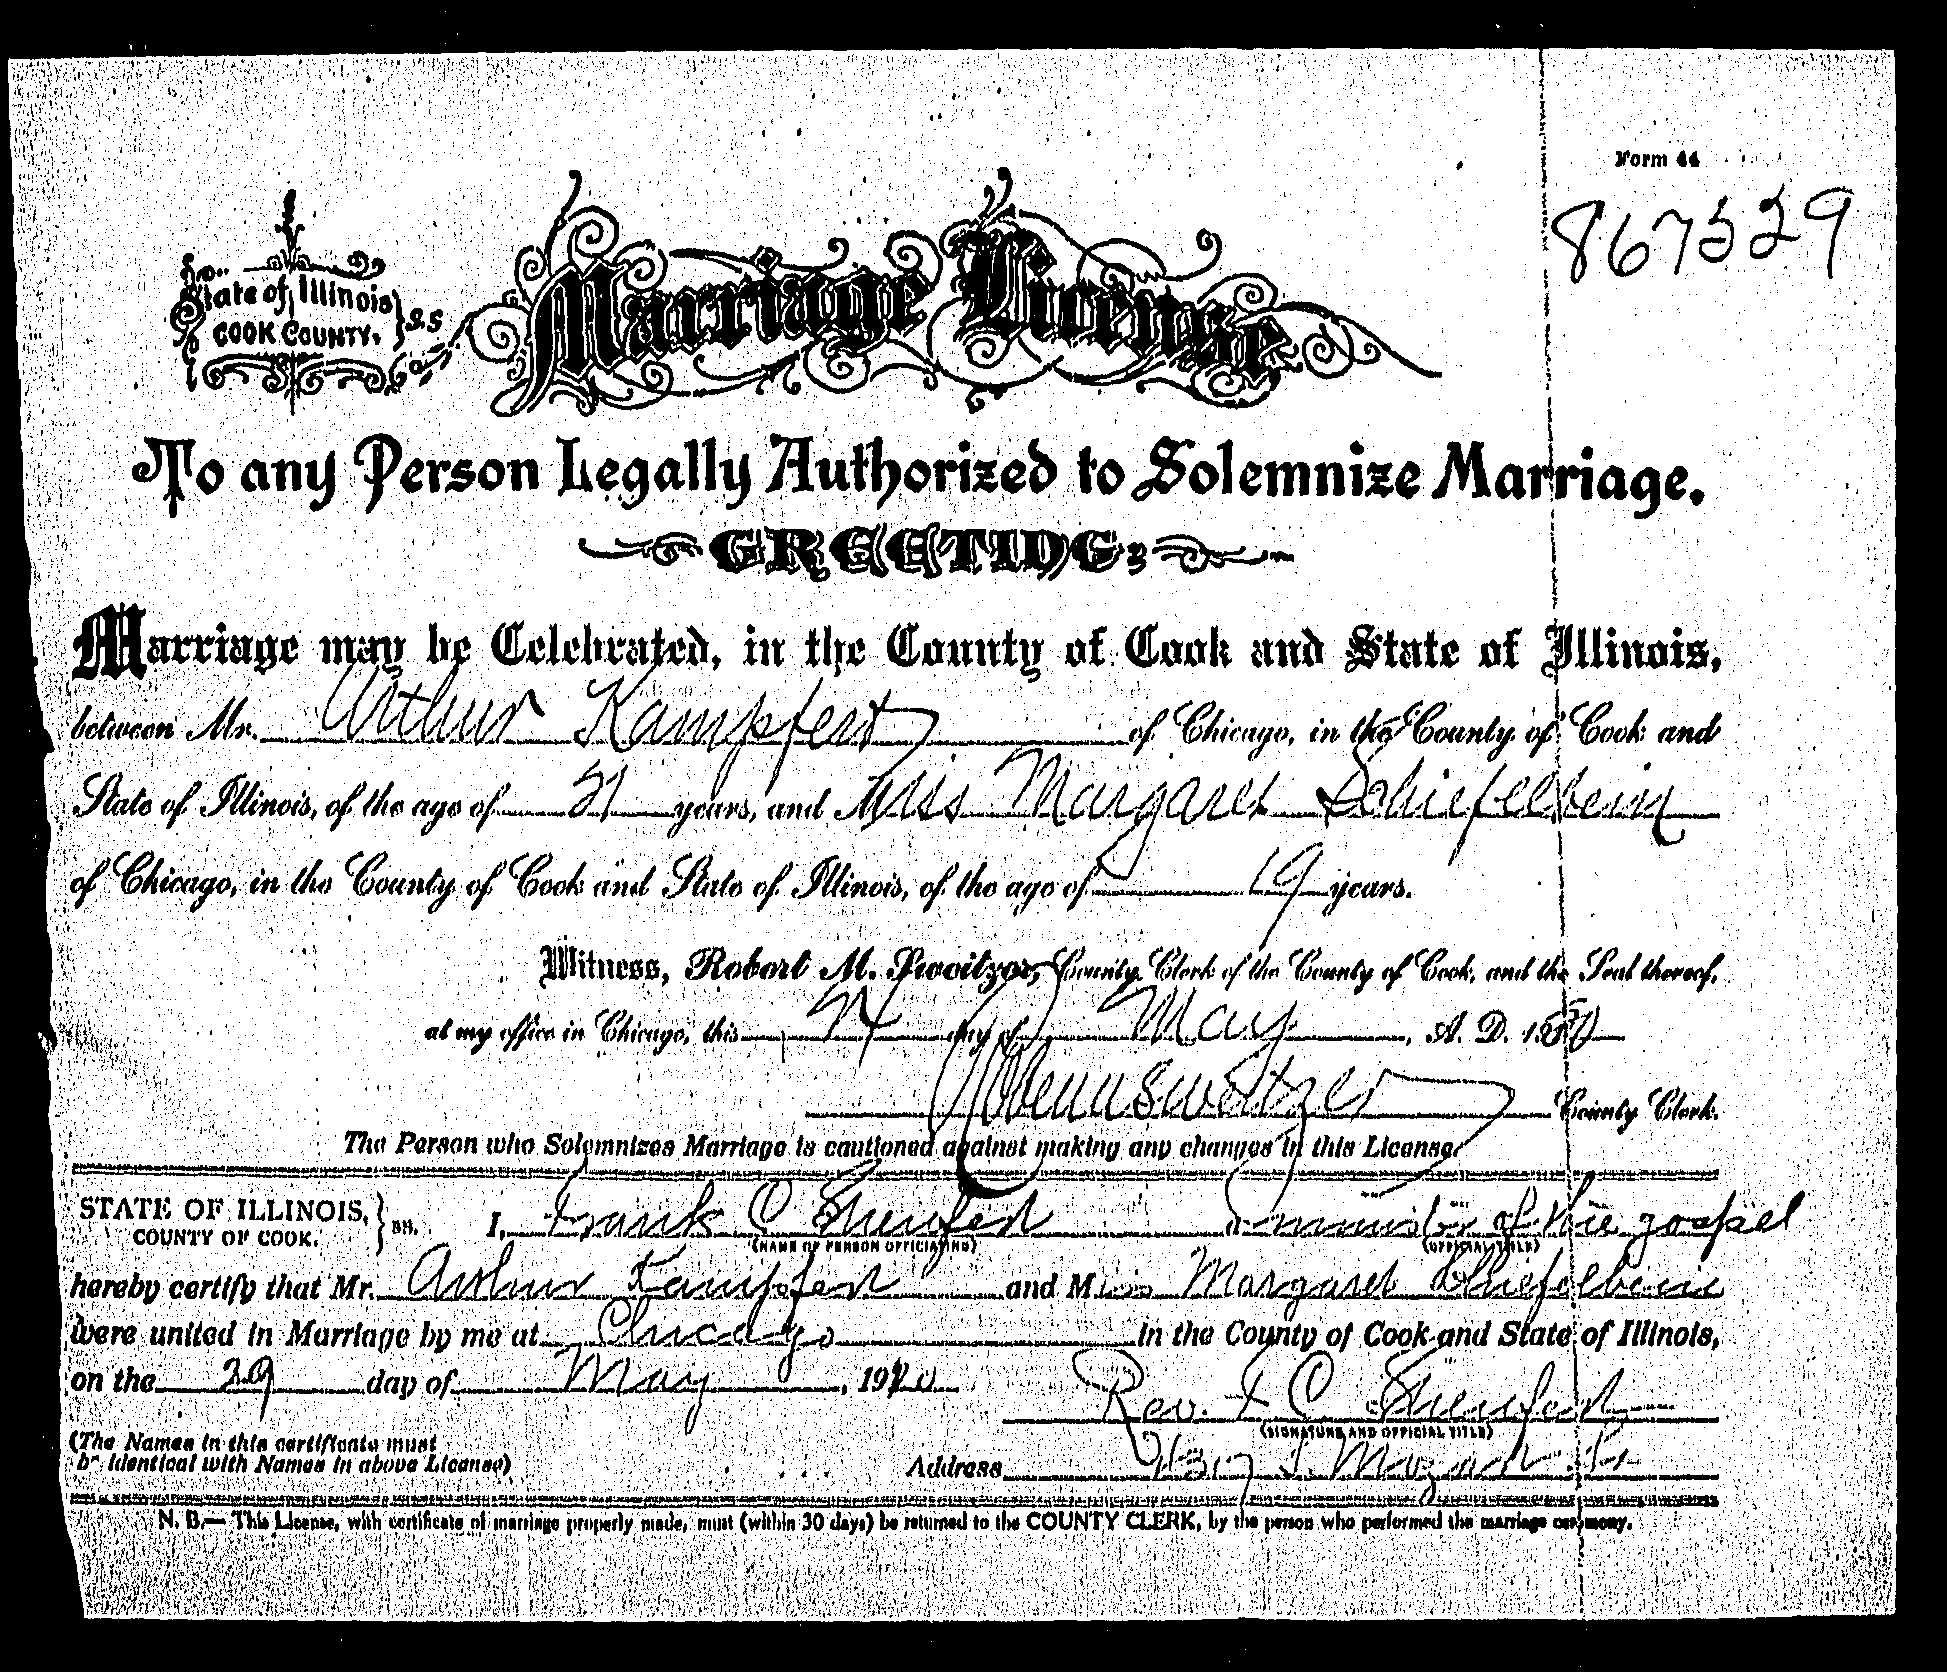 Form 44
867529
State of Illinois
COOK COUNTY. } S.S
Marriage License
To any Person Legally Authorized to Solemnize Marriage.
GREETING:
Marriage may be Celebrated, in the County of Cook and State of Illinois,
between Mr. Arthur Kampfert of Chicago, in the County of Cook and
State of Illinois, of the age of 21 years, and Miss Margaret Schiefelbein
of Chicago, in the County of Cook and State of Illinois, of the age of 19 years.
Witness, Robert M. Sweitzer, County Clerk of the County of Cook, and the Seal thereof,
at my office in Chicago, this day of May, A. D. 19
Sweitzer County Clerk.
The Person who Solemnizes Marriage is cautioned against making any changes in this License
STATE OF ILLINOIS, } ss.
COUNTY OF COOK.
I, Frank C a minister of the gospel
(NAME OF PERSON OFFICIATING) (OFFICIAL TITLE)
hereby certify that Mr. Arthur Kampfert and Miss Margaret Schiefelbein
were united in Marriage by me at Chicago in the County of Cook and State of Illinois,
on the 29 day of May, 1920
Rev. F C
(SIGNATURE AND OFFICIAL TITLE)
(The Names in this certificate must
be identical with Names in above License)
Address S. Mozart St
N. B.— This License, with certificate of marriage properly made, must (within 30 days) be returned to the COUNTY CLERK, by the person who performed the marriage ceremony.